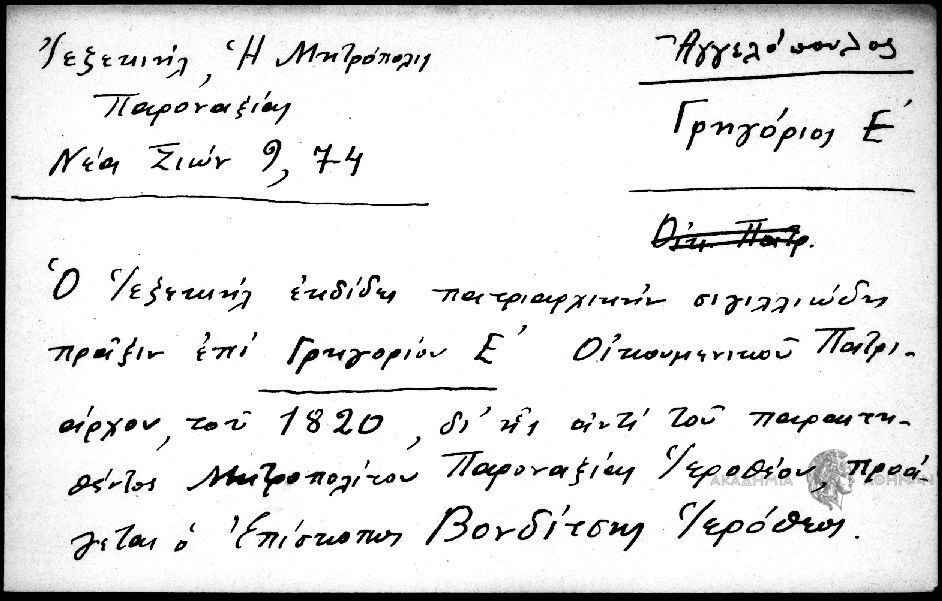 Ἰεζεκιήλ, Ἡ Μητρόπολις
Παροναξίας
Νέα Σιών 9, 74
Ἀγγελόπουλος
Γρηγόριος Ε΄
Οἰκ. Πατρ.
Ὁ Ἰεζεκιήλ ἐκδίδει πατριαρχικήν σιγιλλιώδη
πρᾶξιν ἐπί Γρηγορίου Ε΄ Οἰκουμενικοῦ Πατρι-
άρχου, τοῦ 1820, δι' ἧς ἀντί τοῦ παραιτη-
θέντος Μητροπολίτου Παροναξίας Ἱεροθέου, προά-
γεται ὁ Ἐπίσκοπος Βονδίτσης Ἱερόθεος.
ΑΚΑΔΗΜΙΑ ΑΘΗΝΩΝ